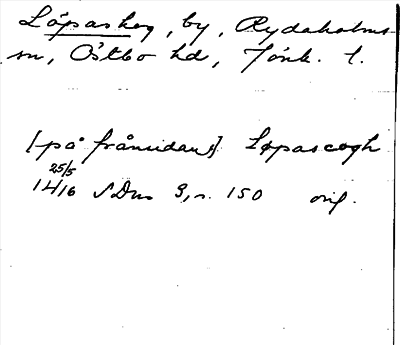 Löpaskog, by, Rydaholms
sn, Östbo hd, Jönk. l.
[på frånsidan] Løpascogh
25/5
14/16 SDns 3, s. 150 orig.